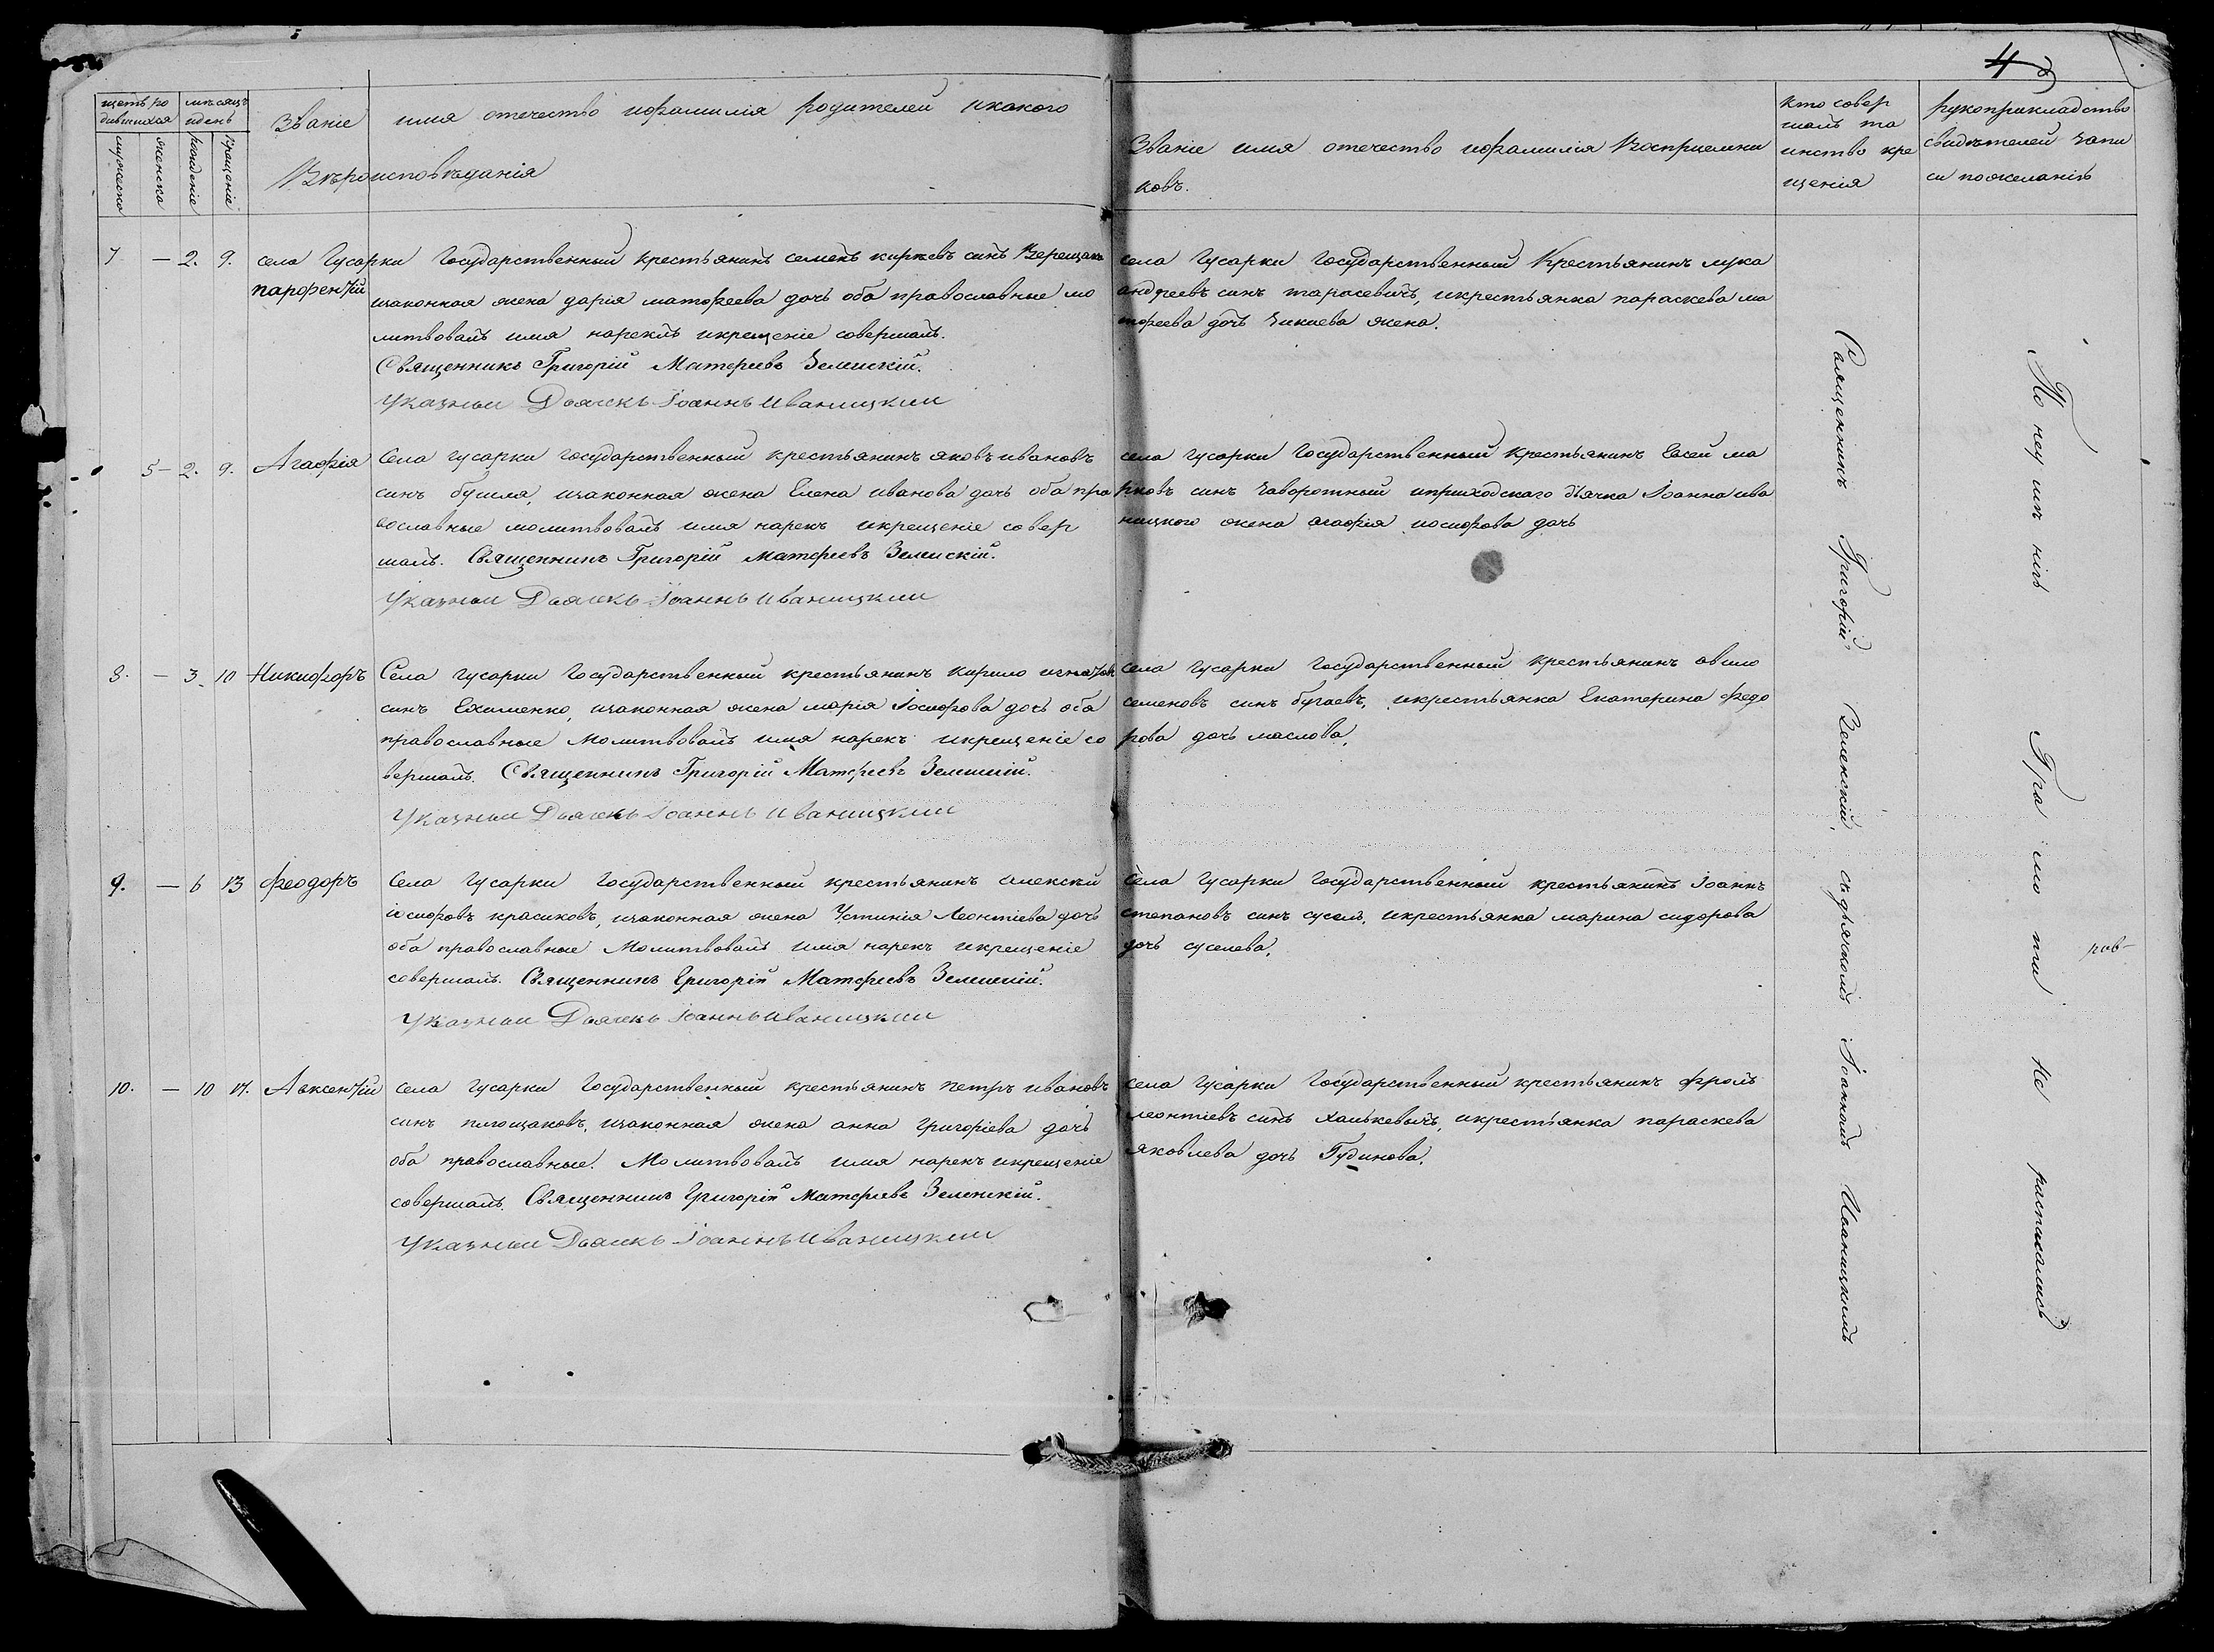 4
щетъ ро
дившихся
мѣсяцъ
идень
мужеска
женска
рожденіе
крещеніе
Званіе имя отечество ифамилія родителей икакого
Вѣроисповѣданія
Званіе имя отечество ифамилія Восприемни
ковъ.
кто совер
шалъ та
инство кре
щенія
рукоприкладство
свидѣтелей запи
си пожеланію
7 — 2. 9. села Гусарки Государственный крестьянинъ семенъ киревъ синъ Верещака
парфентій изаконная жена дарія матфеева дочь оба православные мо
литвовалъ имя нарекъ икрещеніе совершалъ.
Священникъ Григорій Матфеевъ Зеленскій.
Указныи Дьячекъ Іоаннъ Иваницкии
села Гусарки государственный Крестьянинъ лука
андреевъ синъ тарасевичъ, икрестьянка параскева ма
тфеева дочь жена.
5 — 2. 9. Агафія Села гусарки государственный крестьянинъ яковъ ивановъ
синъ бушля, изаконная жена Елена иванова дочь оба пра
вославные молитвовалъ имя нарекъ икрещеніе совер
шалъ. Священникъ Григорій матфеевъ Зеленскій.
Указныи Дьячекъ Іоаннъ Иваницкии
села гусарки государственный крестьянинъ Евсей ма
рковъ синъ Заворотный иприходскаго дьячка Іоанна ива
ницкого жена агафія иосифова дочь
8. — 3. 10 Никифоръ Села гусарки Государственный крестьянинъ кирило
синъ Ехименко, изаконная жена марія Іосифова дочь оба
православные Молитвовалъ имя нарекъ икрещеніе со
вершалъ. Священникъ Григорій Матфеевъ Зеленскій.
Указныи Дьячекъ Іоаннъ Иваницкии
села гусарки Государственный крестьянинъ
семеновъ синъ бугаевъ, икрестьянка Екатерина федо
рова дочь маслова,
9. — 6 13 феодоръ Села гусарки государственный крестьянинъ алексѣй
іосифовъ красиковъ, изаконная жена Устинія Леонтіева дочь
оба православные Молитвовалъ имя нарекъ икрещеніе
совершалъ. Священникъ Григорій Матфеевъ Зеленскій.
Указныи Дьячекъ Іоаннъ Иваницкии
Села Гусарки государственный крестьянинъ Іоаннъ
степановъ синъ суселъ, икрестьянка марина сидорова
дочь суселева.
10. — 10 17. Авксентій Села гусарки Государственный крестьянинъ петръ ивановъ
синъ площаковъ, изаконная жена анна григоріева дочь
оба православные. Молитвовалъ имя нарекъ икрещеніе
совершалъ. Священникъ Григорій Матфеевъ Зеленскій.
Указныи Дьячекъ Іоаннъ Иваницкии
села гусарки Государственный крестьянинъ фролъ
леонтіевъ синъ халькевычъ, икрестьянка параскева
яковлева дочь Гудинова.
Священникъ Григорій Зеленскій, съ дьячкомъ Іоанномъ Иваницкимъ
По неумѣнію Грамоти не расписались